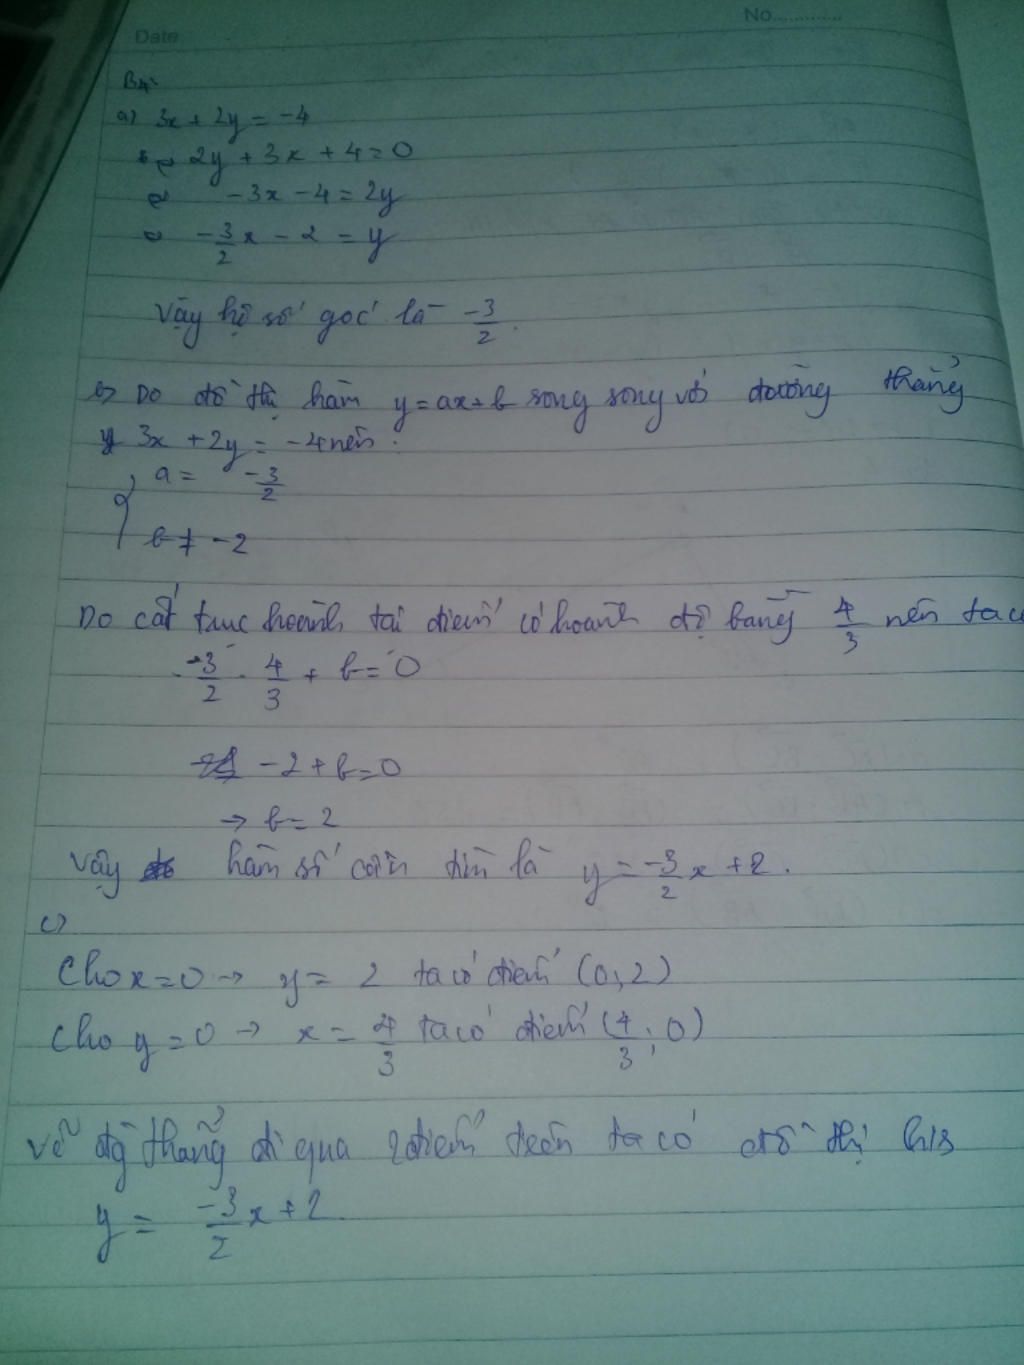 No.............
Date
B4:
a) 3x + 2y = -4
⇔ 2y + 3x + 4 = 0
⇔ -3x - 4 = 2y
⇔ -3/2 x - 2 = y
Vậy hệ số góc là -3/2.
b) Do đồ thị hàm y = ax + b song song với đường thẳng
3x + 2y = -4 nên:
{ a = -3/2
b ≠ -2
Do cắt trục hoành tại điểm có hoành độ bằng 4/3 nên ta có
-3/2 . 4/3 + b = 0
-2 + b = 0
→ b = 2
Vậy hàm số cần tìm là y = -3/2 x + 2.
c)
Cho x = 0 → y = 2 ta có điểm (0; 2)
Cho y = 0 → x = 4/3 ta có điểm (4/3; 0)
Vẽ đg thẳng đi qua 2 điểm trên ta có đồ thị h/s
y = -3/2 x + 2